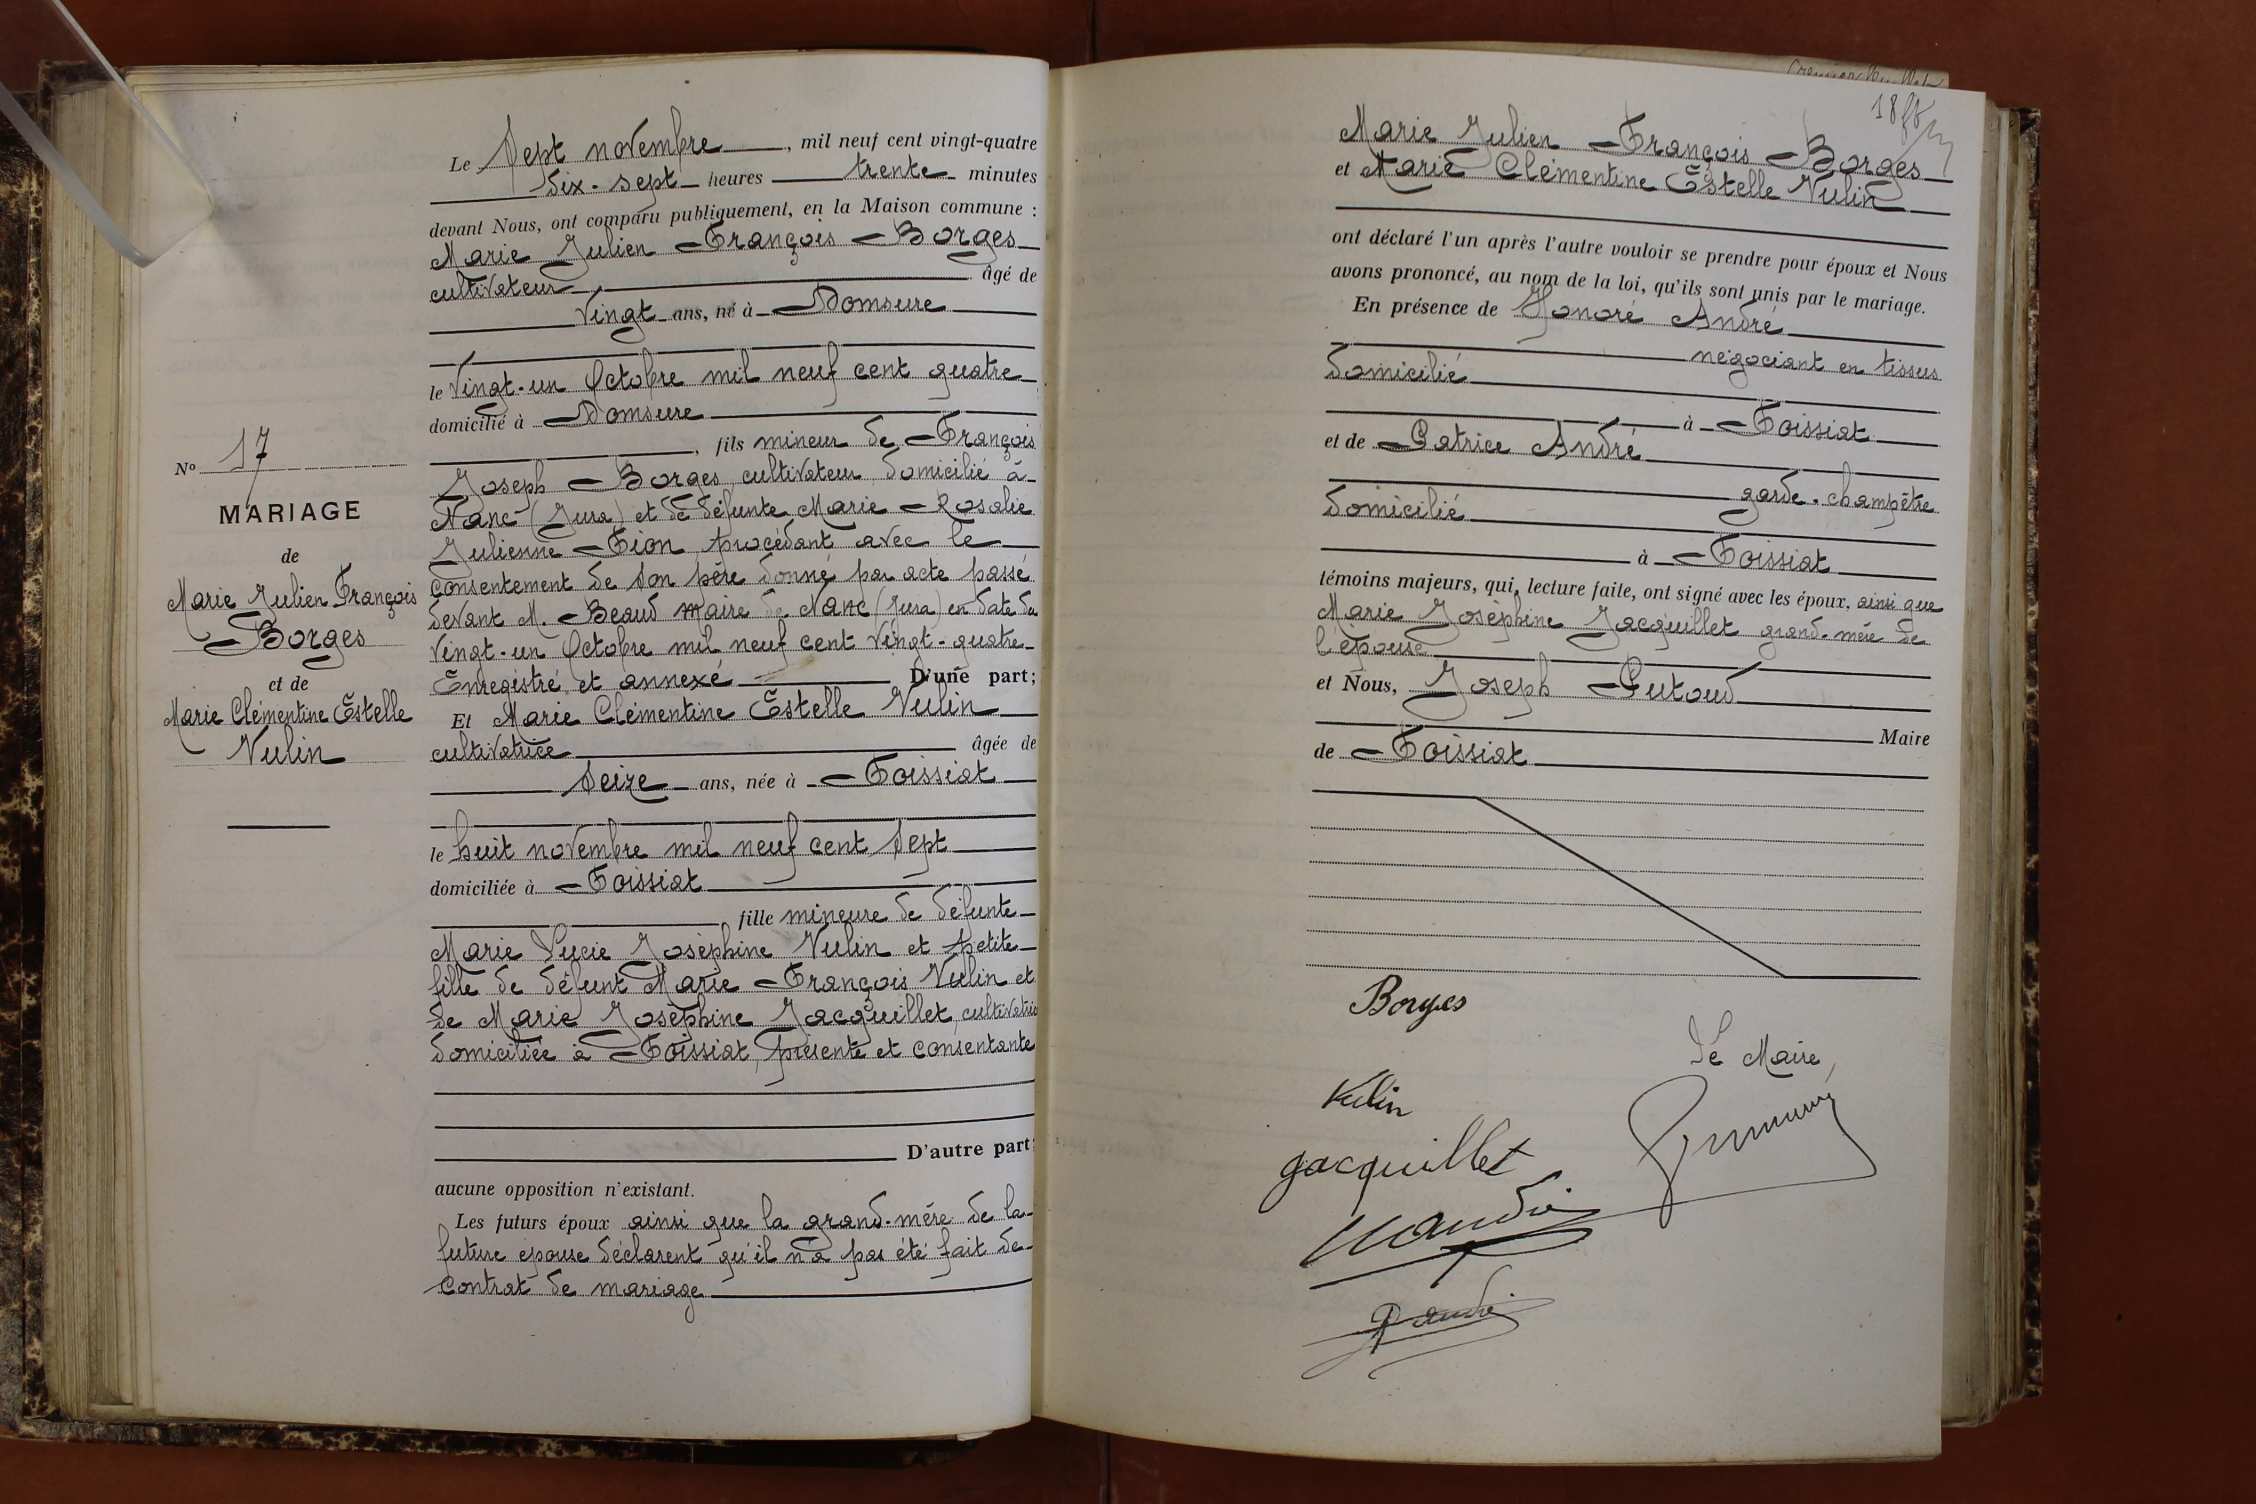 Le Sept novembre, mil neuf cent vingt-quatre
dix-sept heures trente minutes
devant Nous, ont comparu publiquement, en la Maison commune :
Marie Julien François Borges
cultivateur âgé de
vingt ans, né à Domsure
le vingt-un Octobre mil neuf cent quatre
domicilié à Domsure
, fils mineur de François
Joseph Borges, cultivateur domicilié à
Nanc (Jura) et de défunte Marie Rosalie
Julienne Tion, procédant avec le
consentement de son père donné par acte passé
devant M. Beaud maire de Nanc (Jura) en date du
vingt-un Octobre mil neuf cent vingt-quatre
Enregistré et annexé D'une part;
Et Marie Clémentine Estelle Vulin
cultivatrice âgée de
seize ans, née à Foissiat
le huit novembre mil neuf cent sept
domiciliée à Foissiat
fille mineure de défunte
Marie Lucie Josèphine Vulin et petite
fille de défunt Marie François Vulin et
de Marie Josèphine Jacquillet, cultivatrice
domiciliée à Foissiat, présente et consentante
D'autre part;
aucune opposition n'existant.
Les futurs époux ainsi que la grand-mère de la
future épouse déclarent qu'il n'a pas été fait de
contrat de mariage
No 17
MARIAGE
de
Marie Julien François
Borges
et de
Marie Clémentine Estelle
Vulin
Marie Julien François Borges
et Marie Clémentine Estelle Vulin
ont déclaré l'un après l'autre vouloir se prendre pour époux et Nous
avons prononcé, au nom de la loi, qu'ils sont unis par le mariage.
En présence de Honoré André
négociant en tissus
domicilié
à Foissiat
et de Patrice André
garde-champêtre
domicilié
à Foissiat
témoins majeurs, qui, lecture faite, ont signé avec les époux, ainsi que
Marie Josèphine Jacquillet grand-mère de
l'épouse
et Nous, Joseph Putoud
Maire
de Foissiat
Borges
Le Maire,
Vulin
Jacquillet